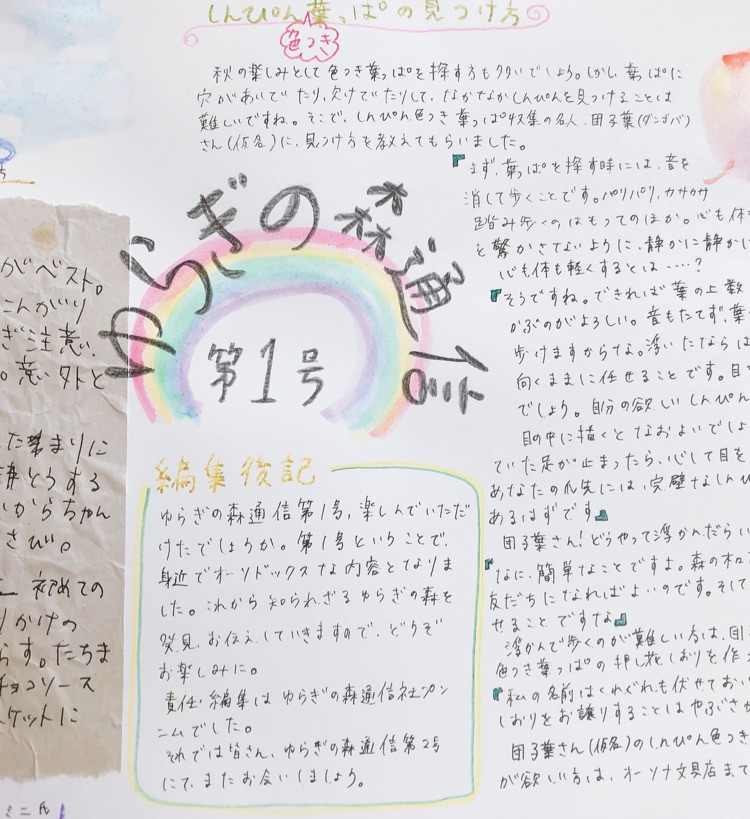 しんぴん葉っぱの見つけ方
色つき
秋の楽しみとして色つき葉っぱを探す方も多いでしょう。しかし、葉っぱに
穴があいでてたり、欠けでてたりして、なかなかしんぴんを見つけることは
難しいですね。そこで、しんぴん色つき葉っぱ収集の名人、団子葉(ダンゴバ)
さん(仮名)に、見つけ方を教えてもらいました。
『まず、葉っぱを探す時には、音を
消して歩くことです。パリパリ、カサカサ
踏み歩くのはもってのほか。心も体
を驚かさないように、静かに静かに
心も体も軽くするとは……?
『そうですね。できれば葉の上数
かぶのがよろしい。音もたてず、葉
歩けますからな。浮いたならば
向くままに任せることです。目
でしょう。自分の欲しいしんぴん
目の中に描くとなおよいでしょ
ていた足が止まったら、心して目を
あなたの爪先には、完璧なしんぴ
あるはずです』
団子葉さん!どうやって浮かんだらい
『なに、簡単なことですよ。森の木
友だちになればよいのです。そして
せることですな』
浮かんで歩くのが難しい方は、団
色つき葉っぱの押し花しおりを作
『私の名前はくれぐれも伏せておい
しおりをお譲りすることはやぶさか
団子葉さん(仮名)のしんぴん色つき
が欲しい方は、オーソナ文具店まで
ゆらぎの森通信
第1号
編集後記
ゆらぎの森通信第1号、楽しんでいただ
けたでしょうか。第1号ということで、
身近でオーソドックスな内容となりま
した。これから知られざるゆらぎの森を
発見、お伝えしていきますので、どうぞ
お楽しみに。
責任・編集は ゆらぎの森通信社プン
ニムでした。
それでは皆さん、ゆらぎの森通信第2号
にて、またお会いしましょう。
がベスト。
こんがり
ぎ注意、
。意外と
た集まりに
謙とうする
いからちゃん
さび。
初めての
りかけの
らす。たちま
チョコソース
ケットに
ミニ氏